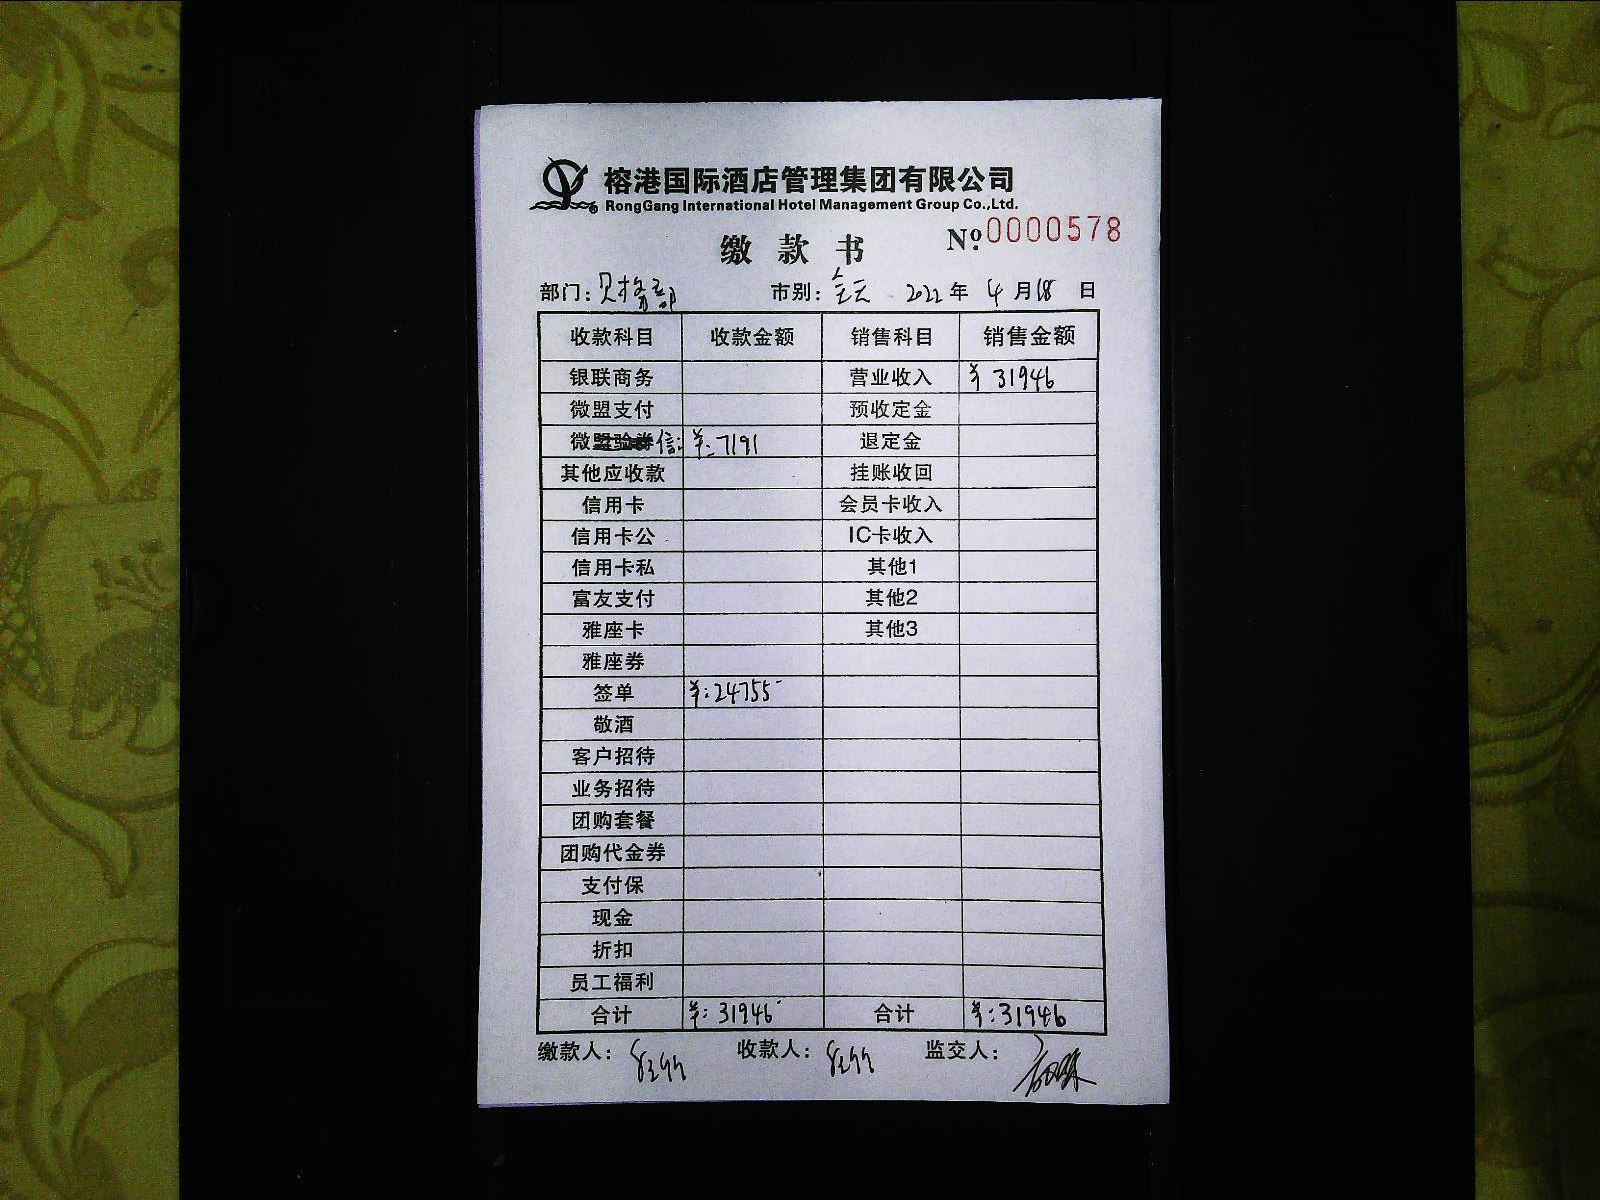 榕港国际酒店管理集团有限公司
RongGang International Hotel Management Group Co.,Ltd.
缴款书 № 0000578
部门: 市别: 全天 2022年 4月18日
收款科目 收款金额 销售科目 销售金额
银联商务 营业收入 ¥ 31946
微盟支付 预收定金
微信: ¥: 7191 退定金
其他应收款 挂账收回
信用卡 会员卡收入
信用卡公 IC卡收入
信用卡私 其他1
富友支付 其他2
雅座卡 其他3
雅座券
签单 ¥: 24755
敬酒
客户招待
业务招待
团购套餐
团购代金券
支付保
现金
折扣
员工福利
合计 ¥: 31946 合计 ¥: 31946
缴款人: 收款人: 监交人: